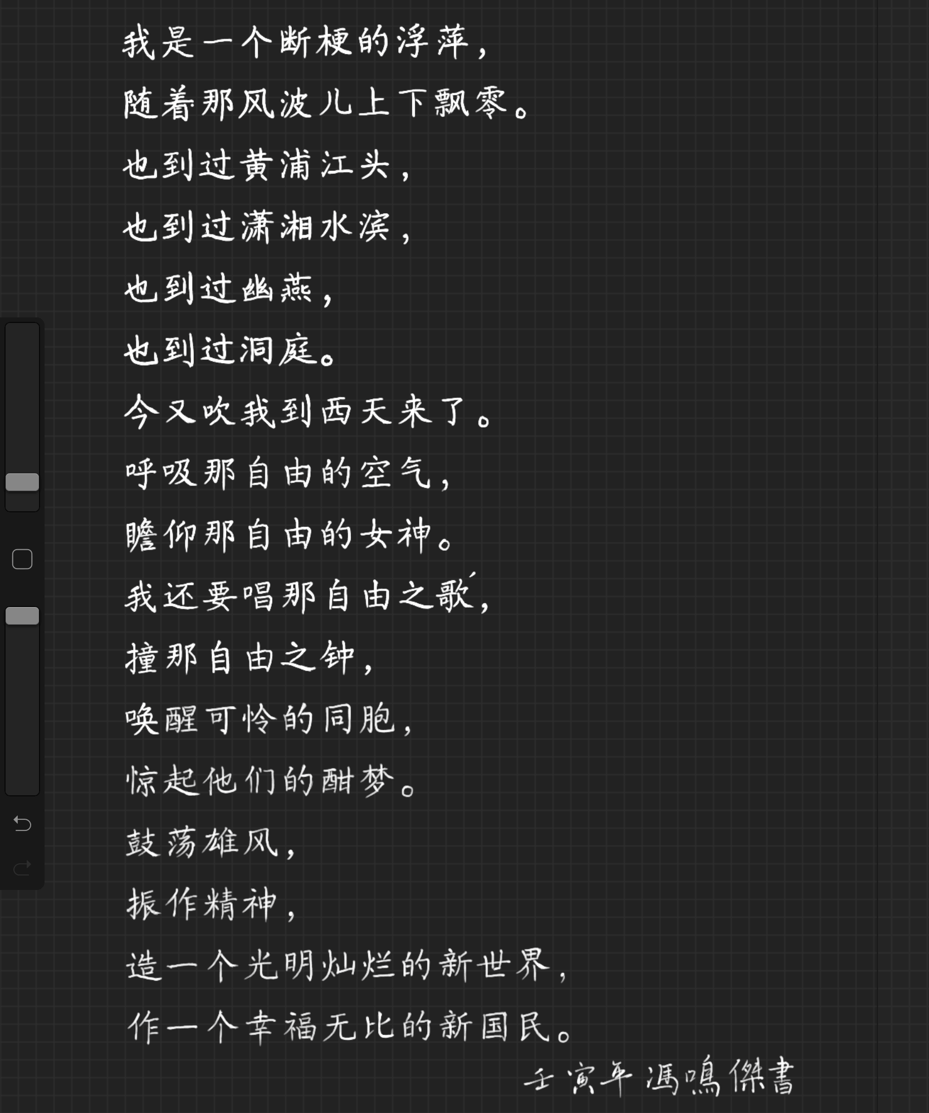 我是一个断梗的浮萍，
随着那风波儿上下飘零。
也到过黄浦江头，
也到过潇湘水滨，
也到过幽燕，
也到过洞庭。
今又吹我到西天来了。
呼吸那自由的空气，
瞻仰那自由的女神。
我还要唱那自由之歌，
撞那自由之钟，
唤醒可怜的同胞，
惊起他们的酣梦。
鼓荡雄风，
振作精神，
造一个光明灿烂的新世界，
作一个幸福无比的新国民。
壬寅年冯鳴傑書